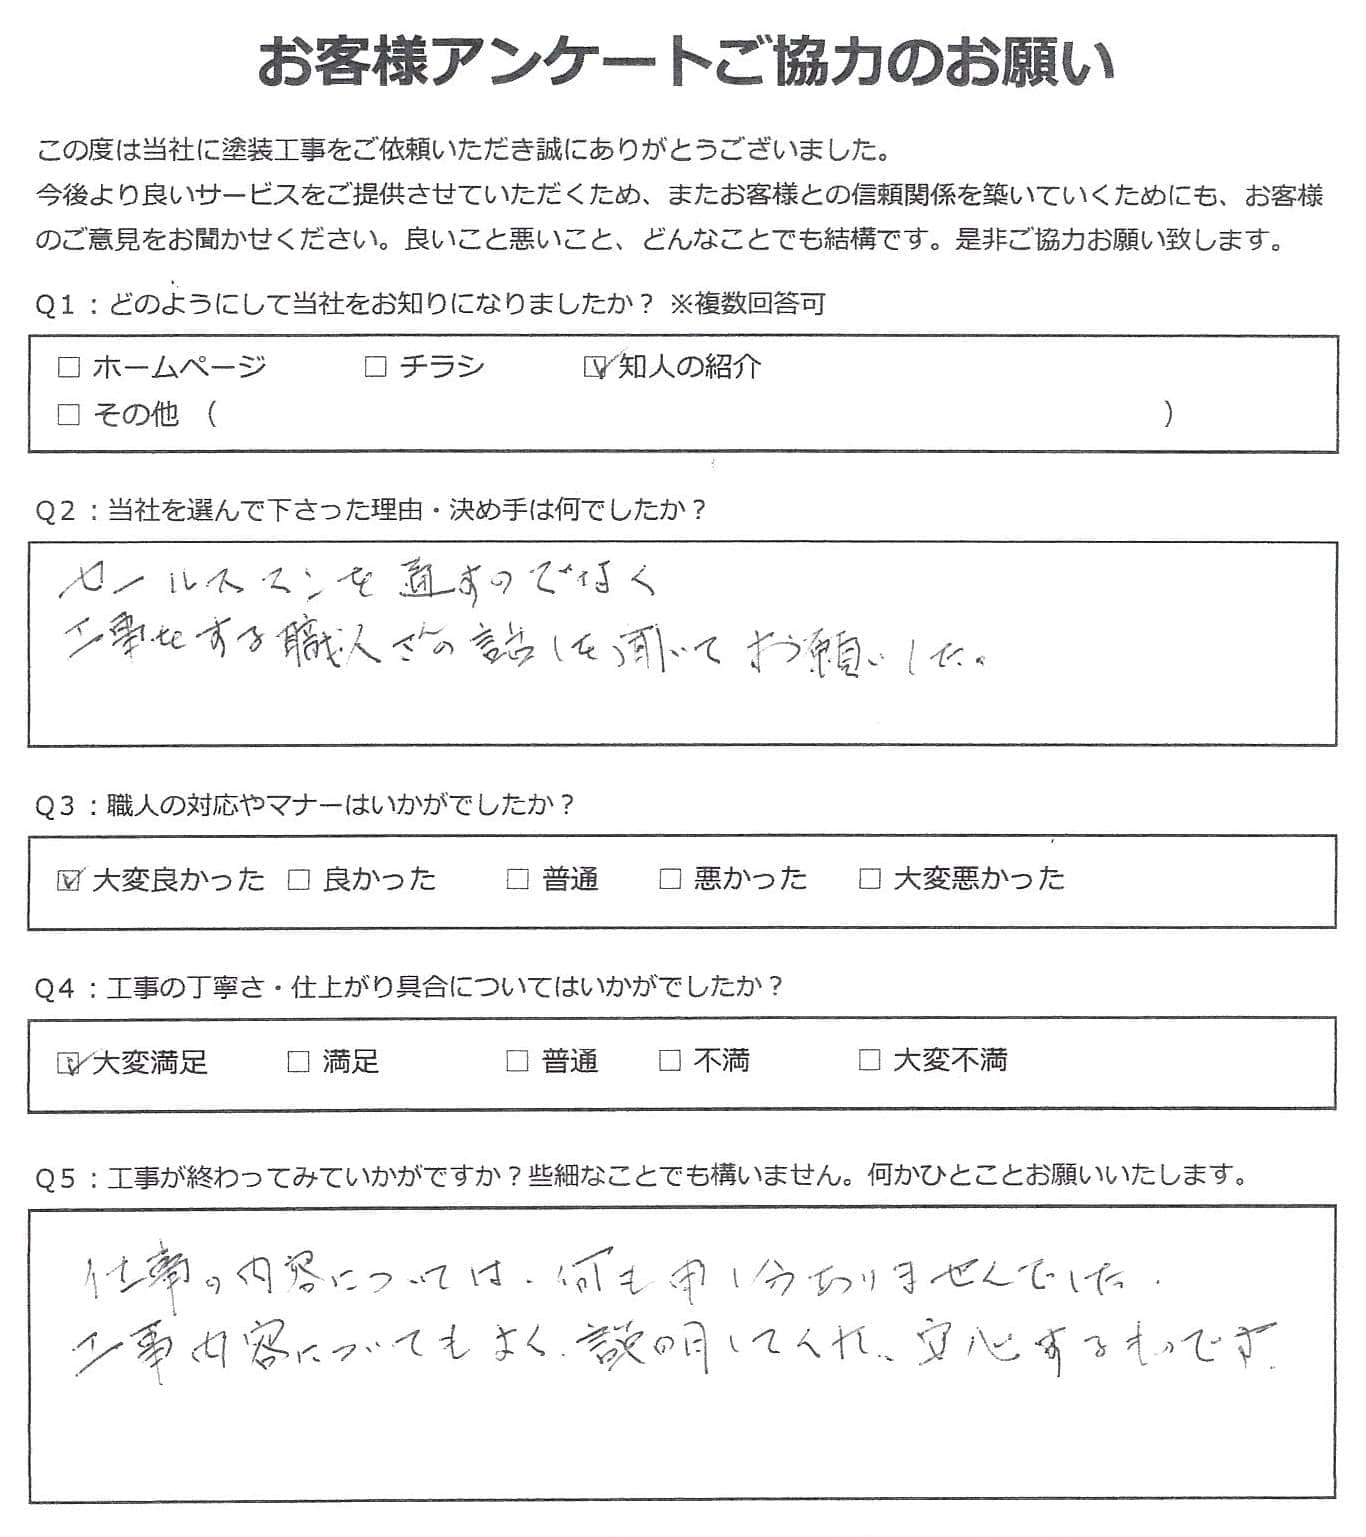 お客様アンケートご協力のお願い
この度は当社に塗装工事をご依頼いただき誠にありがとうございました。
今後より良いサービスをご提供させていただくため、またお客様との信頼関係を築いていくためにも、お客様
のご意見をお聞かせください。良いこと悪いこと、どんなことでも結構です。是非ご協力お願い致します。
Q1：どのようにして当社をお知りになりましたか？ ※複数回答可
□ ホームページ □ チラシ ☑ 知人の紹介
□ その他 （ ）
Q2：当社を選んで下さった理由・決め手は何でしたか？
セールスマンを通すのでなく
工事をする職人さんの話しを聞いてお願いした。
Q3：職人の対応やマナーはいかがでしたか？
☑ 大変良かった □ 良かった □ 普通 □ 悪かった □ 大変悪かった
Q4：工事の丁寧さ・仕上がり具合についてはいかがでしたか？
☑ 大変満足 □ 満足 □ 普通 □ 不満 □ 大変不満
Q5：工事が終わってみていかがですか？些細なことでも構いません。何かひとことお願いいたします。
仕事の内容については、何も申し分ありませんでした。
工事内容についてもよく、説明してくれ、安心するものです。